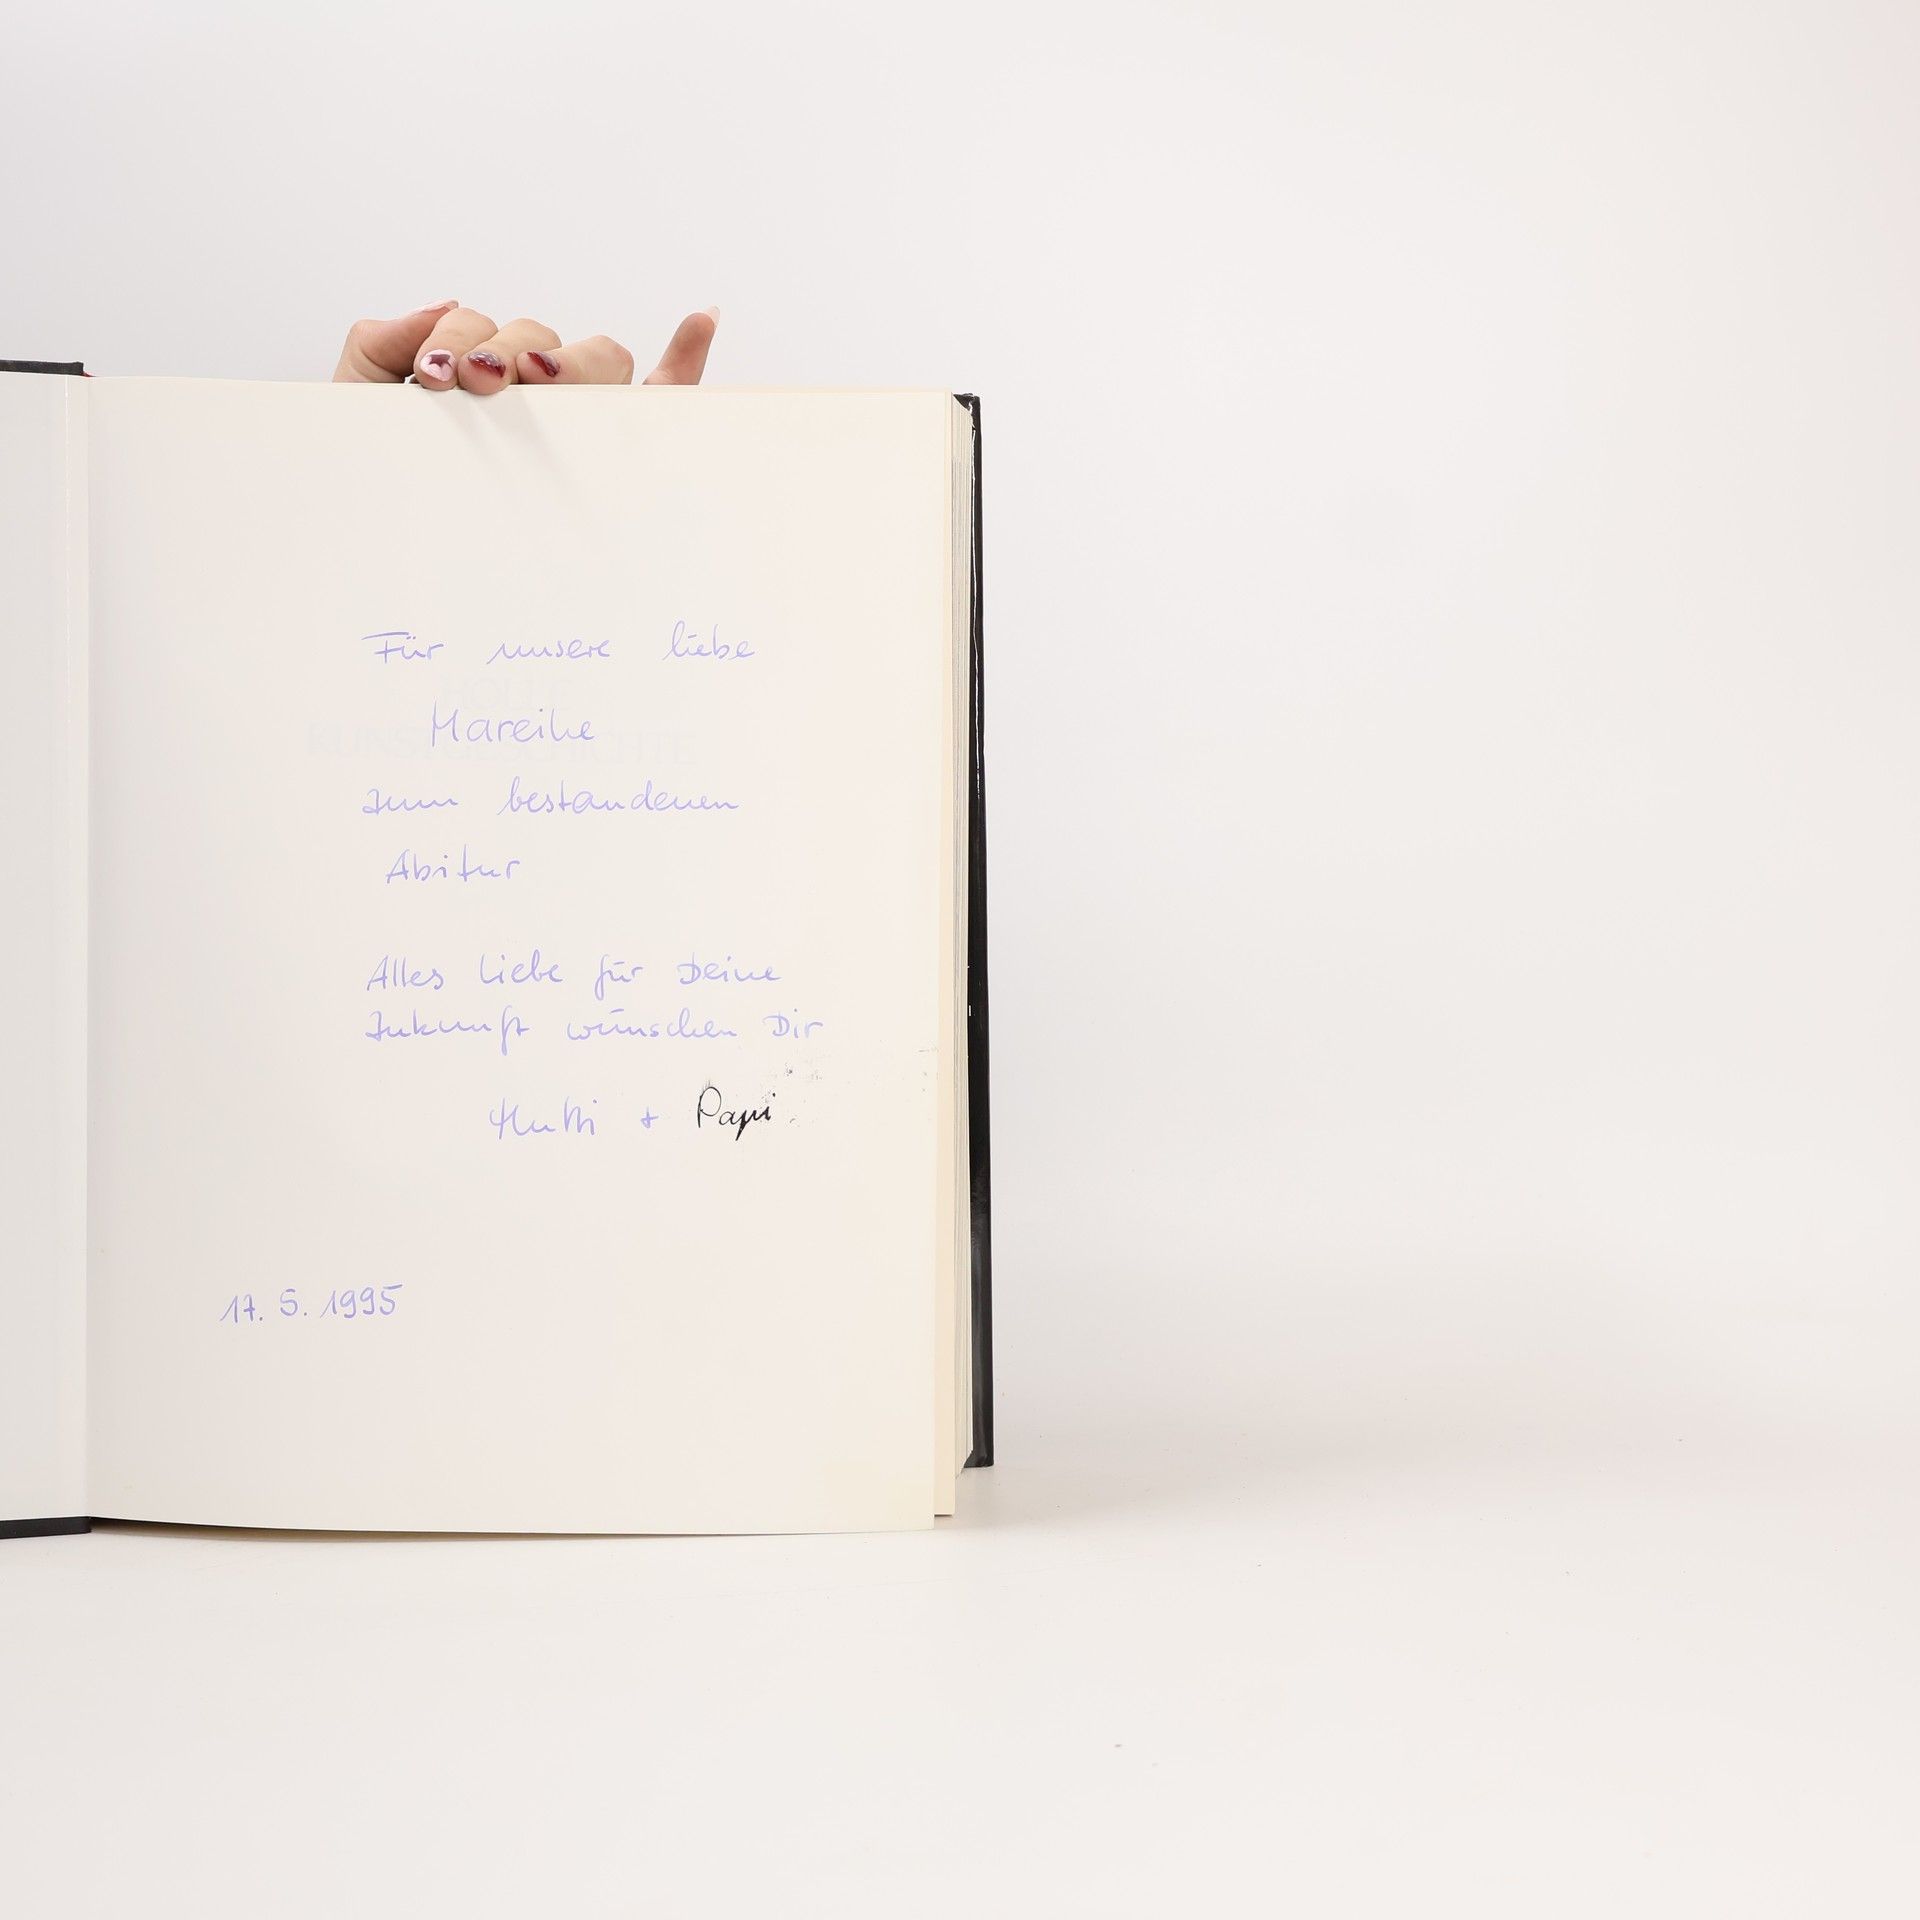 Für unsere liebe
HOLLE
Mareike
KUNSTGESCHICHTE
zum bestandenen
Abitur
Alles Liebe für Deine
Zukunft wünschen Dir
Mutti + Papi.
17. 5. 1995